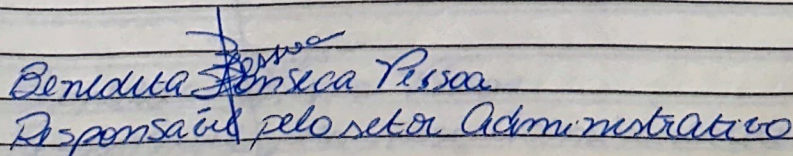 Pessoa
Benedita Fonseca Pessoa
Responsável pelo setor Administrativo